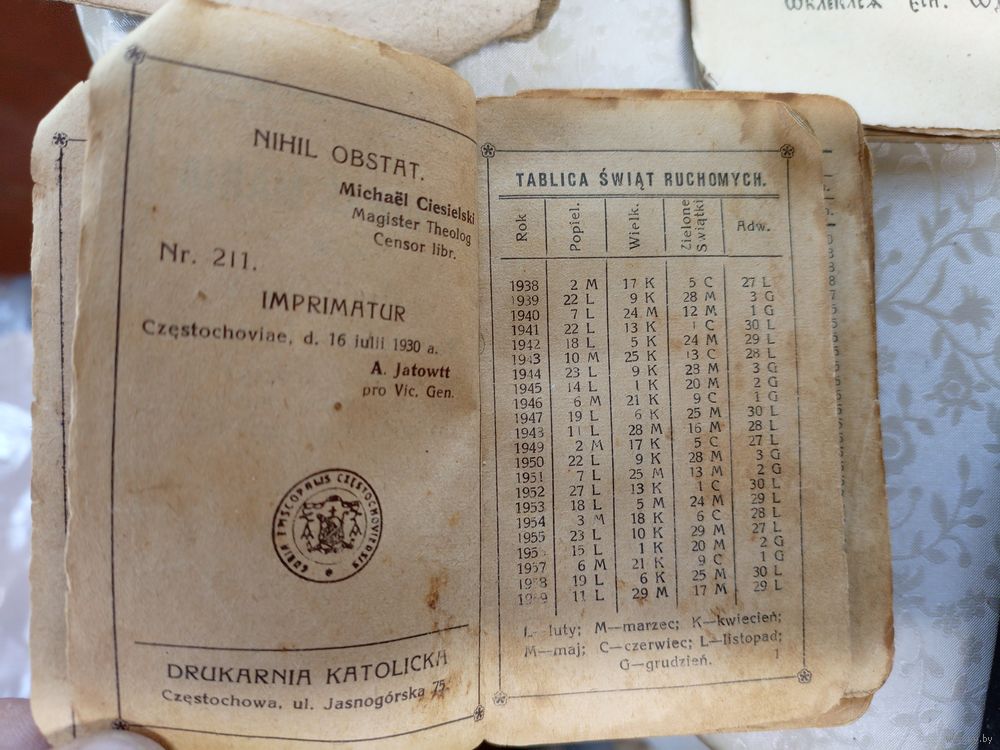 NIHIL OBSTAT.
Michaël Ciesielski
Magister Theolog
Censor libr.
Nr. 211.
IMPRIMATUR
Częstochoviae, d. 16 iulii 1930 a.
A. Jatowtt
pro Vic. Gen.
DRUKARNIA KATOLICKA
Częstochowa, ul. Jasnogórska 75.
TABLICA ŚWIĄT RUCHOMYCH.
Rok Popiel. Wielk. Zielone Świątki Adw.
1938 2 M 17 K 5 C 27 L
1939 22 L 9 K 28 M 3 G
1940 7 L 24 M 12 M 1 G
1941 22 L 13 K 1 C 30 L
1942 18 L 5 K 24 M 29 L
1943 10 M 25 K 13 C 28 L
1944 23 L 9 K 23 M 3 G
1945 14 L 1 K 20 M 2 G
1946 6 M 21 K 9 C 1 G
1947 19 L 6 K 25 M 30 L
1943 11 L 28 M 16 M 28 L
1949 2 M 17 K 5 C 27 L
1950 22 L 9 K 28 M 3 G
1951 7 L 25 M 13 M 2 G
1952 27 L 13 K 1 C 30 L
1953 18 L 5 M 24 M 29 L
1954 3 M 18 K 6 C 28 L
1955 23 L 10 K 29 M 27 L
195 15 L 1 K 20 M 2 G
1957 6 M 21 K 9 C 1 G
1958 19 L 6 K 25 M 30 L
1959 11 L 29 M 17 M 29 L
L—luty; M—marzec; K—kwiecień;
M—maj; C—czerwiec; L—listopad;
G—grudzień. 1